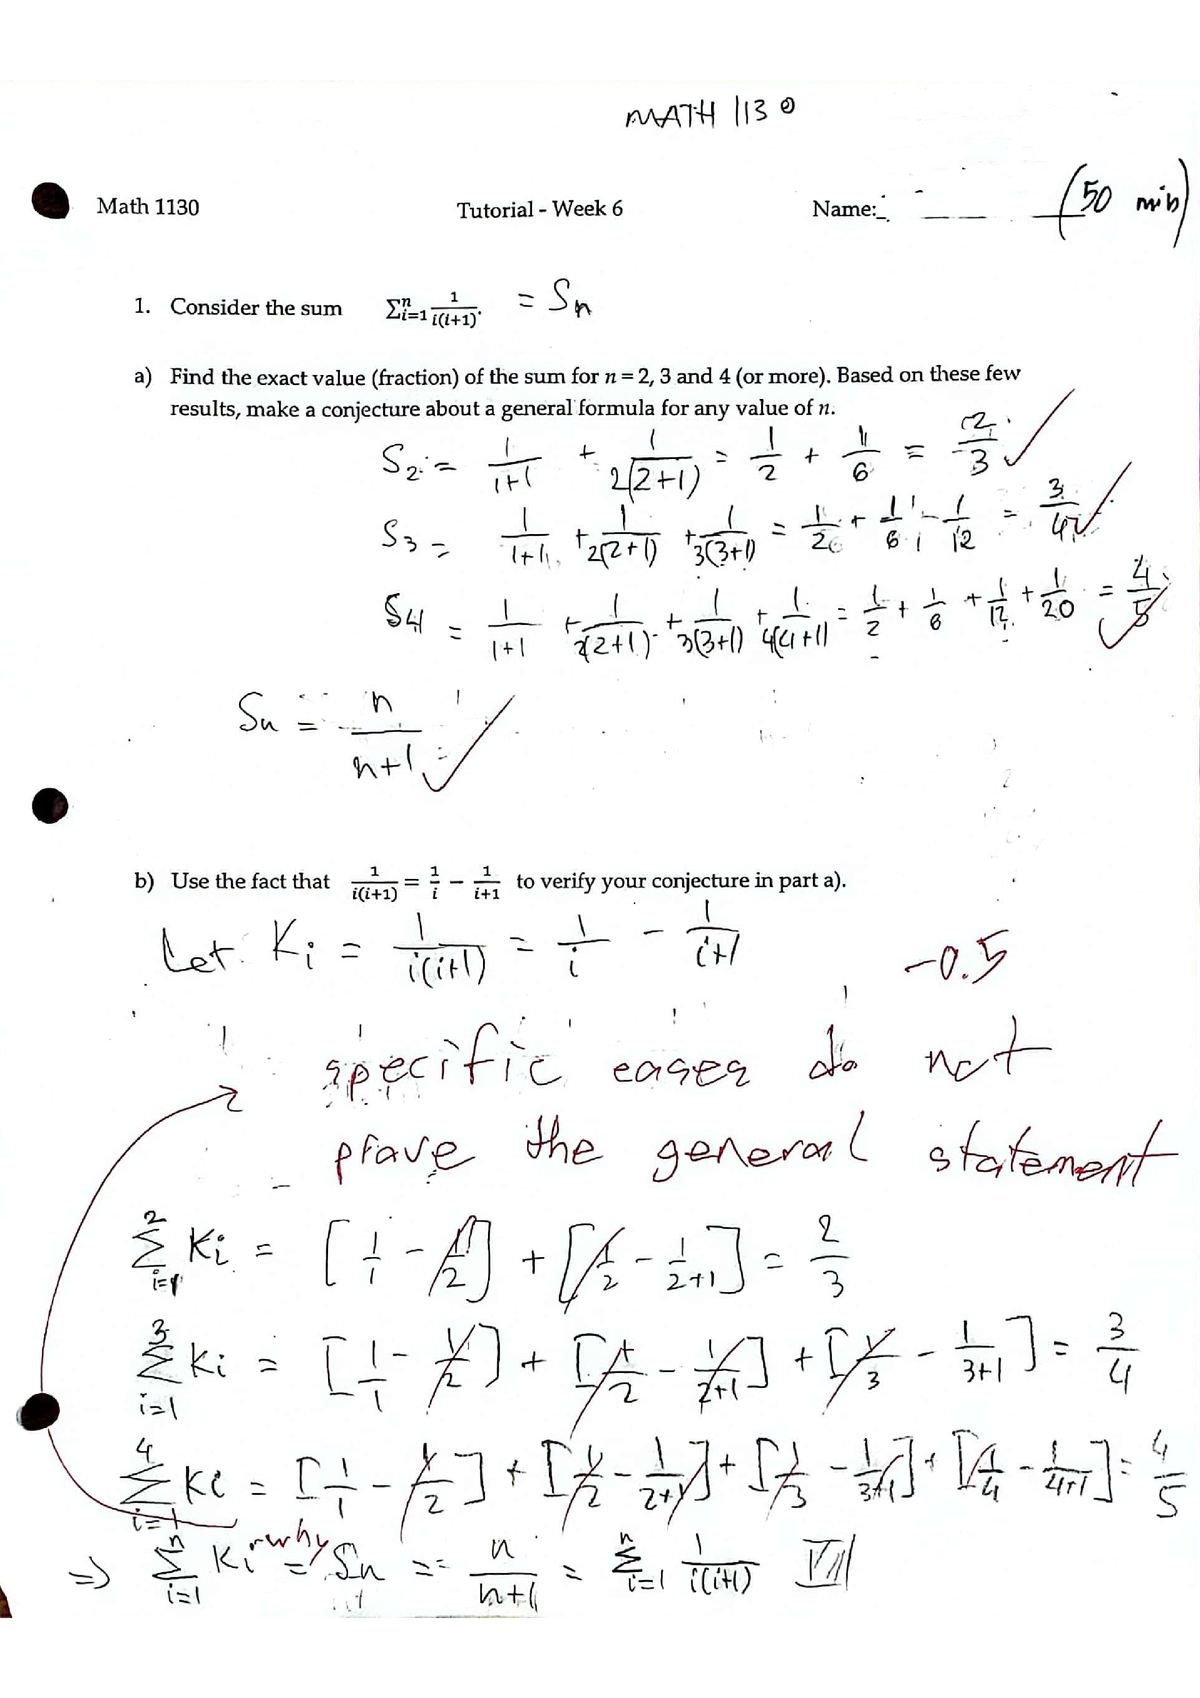 MATH 1130
Math 1130 Tutorial - Week 6 Name: (50 min)
1. Consider the sum Σⁿᵢ₌₁ 1/(i(i+1)). = Sn
a) Find the exact value (fraction) of the sum for n = 2, 3 and 4 (or more). Based on these few
results, make a conjecture about a general formula for any value of n.
S2 = 1/(1+1) + 1/(2(2+1)) = 1/2 + 1/6 = 2/3 ✓
S3 = 1/(1+1) + 1/(2(2+1)) + 1/(3(3+1)) = 1/2 + 1/6 + 1/12 = 3/4 ✓
S4 = 1/(1+1) + 1/(2(2+1)) + 1/(3(3+1)) + 1/(4(4+1)) = 1/2 + 1/6 + 1/12 + 1/20 = 4/5 ✓
Sn = n/(n+1) ✓
b) Use the fact that 1/(i(i+1)) = 1/i − 1/(i+1) to verify your conjecture in part a).
Let Ki = 1/(i(i+1)) = 1/i − 1/(i+1)
-0.5
specific cases do not
prove the general statement
Σ²ᵢ₌₁ Ki = [1/1 − 1/2] + [1/2 − 1/(2+1)] = 2/3
Σ³ᵢ₌₁ Ki = [1/1 − 1/2] + [1/2 − 1/(2+1)] + [1/3 − 1/(3+1)] = 3/4
Σ⁴ᵢ₌₁ Ki = [1/1 − 1/2] + [1/2 − 1/(2+1)] + [1/3 − 1/(3+1)] + [1/4 − 1/(4+1)] = 4/5
why
⇒ Σⁿᵢ₌₁ Ki = Sn = n/(n+1) = Σⁿᵢ₌₁ 1/(i(i+1))